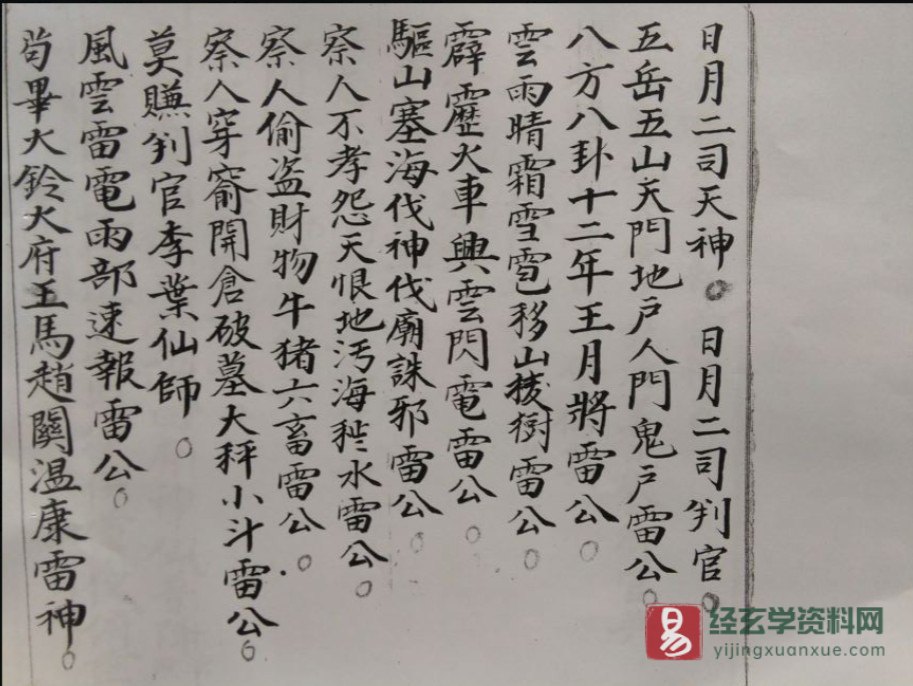 日月二司天神。日月二司判官。
五岳五山天門地戶人門鬼戶雷公。
八方八卦十二年王月將雷公。
雲雨晴霜雪雹移山拔樹雷公。
霹靂火車興雲閃電雷公。
驅山塞海伐神伐廟誅邪雷公。
察人不孝怨天恨地污海水雷公。
察人偷盜財物牛猪六畜雷公。
察人穿窬開倉破墓大秤小斗雷公。
莫賺判官李葉仙師。
風雲雷電雨部速報雷公。
苟畢火鈴大府王馬趙關温康雷神。
易
经玄学资料网
yijingxuanxue.com